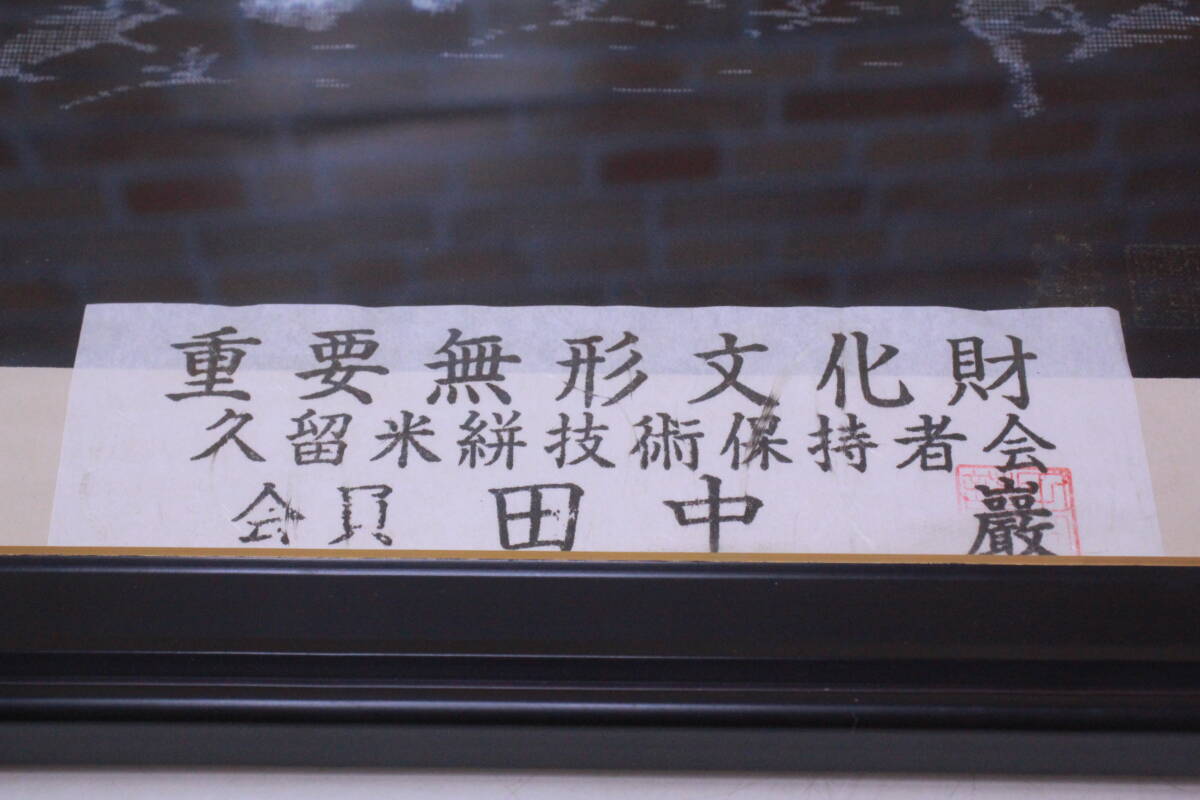 重要無形文化財
久留米絣技術保持者会
会員 田中 巖